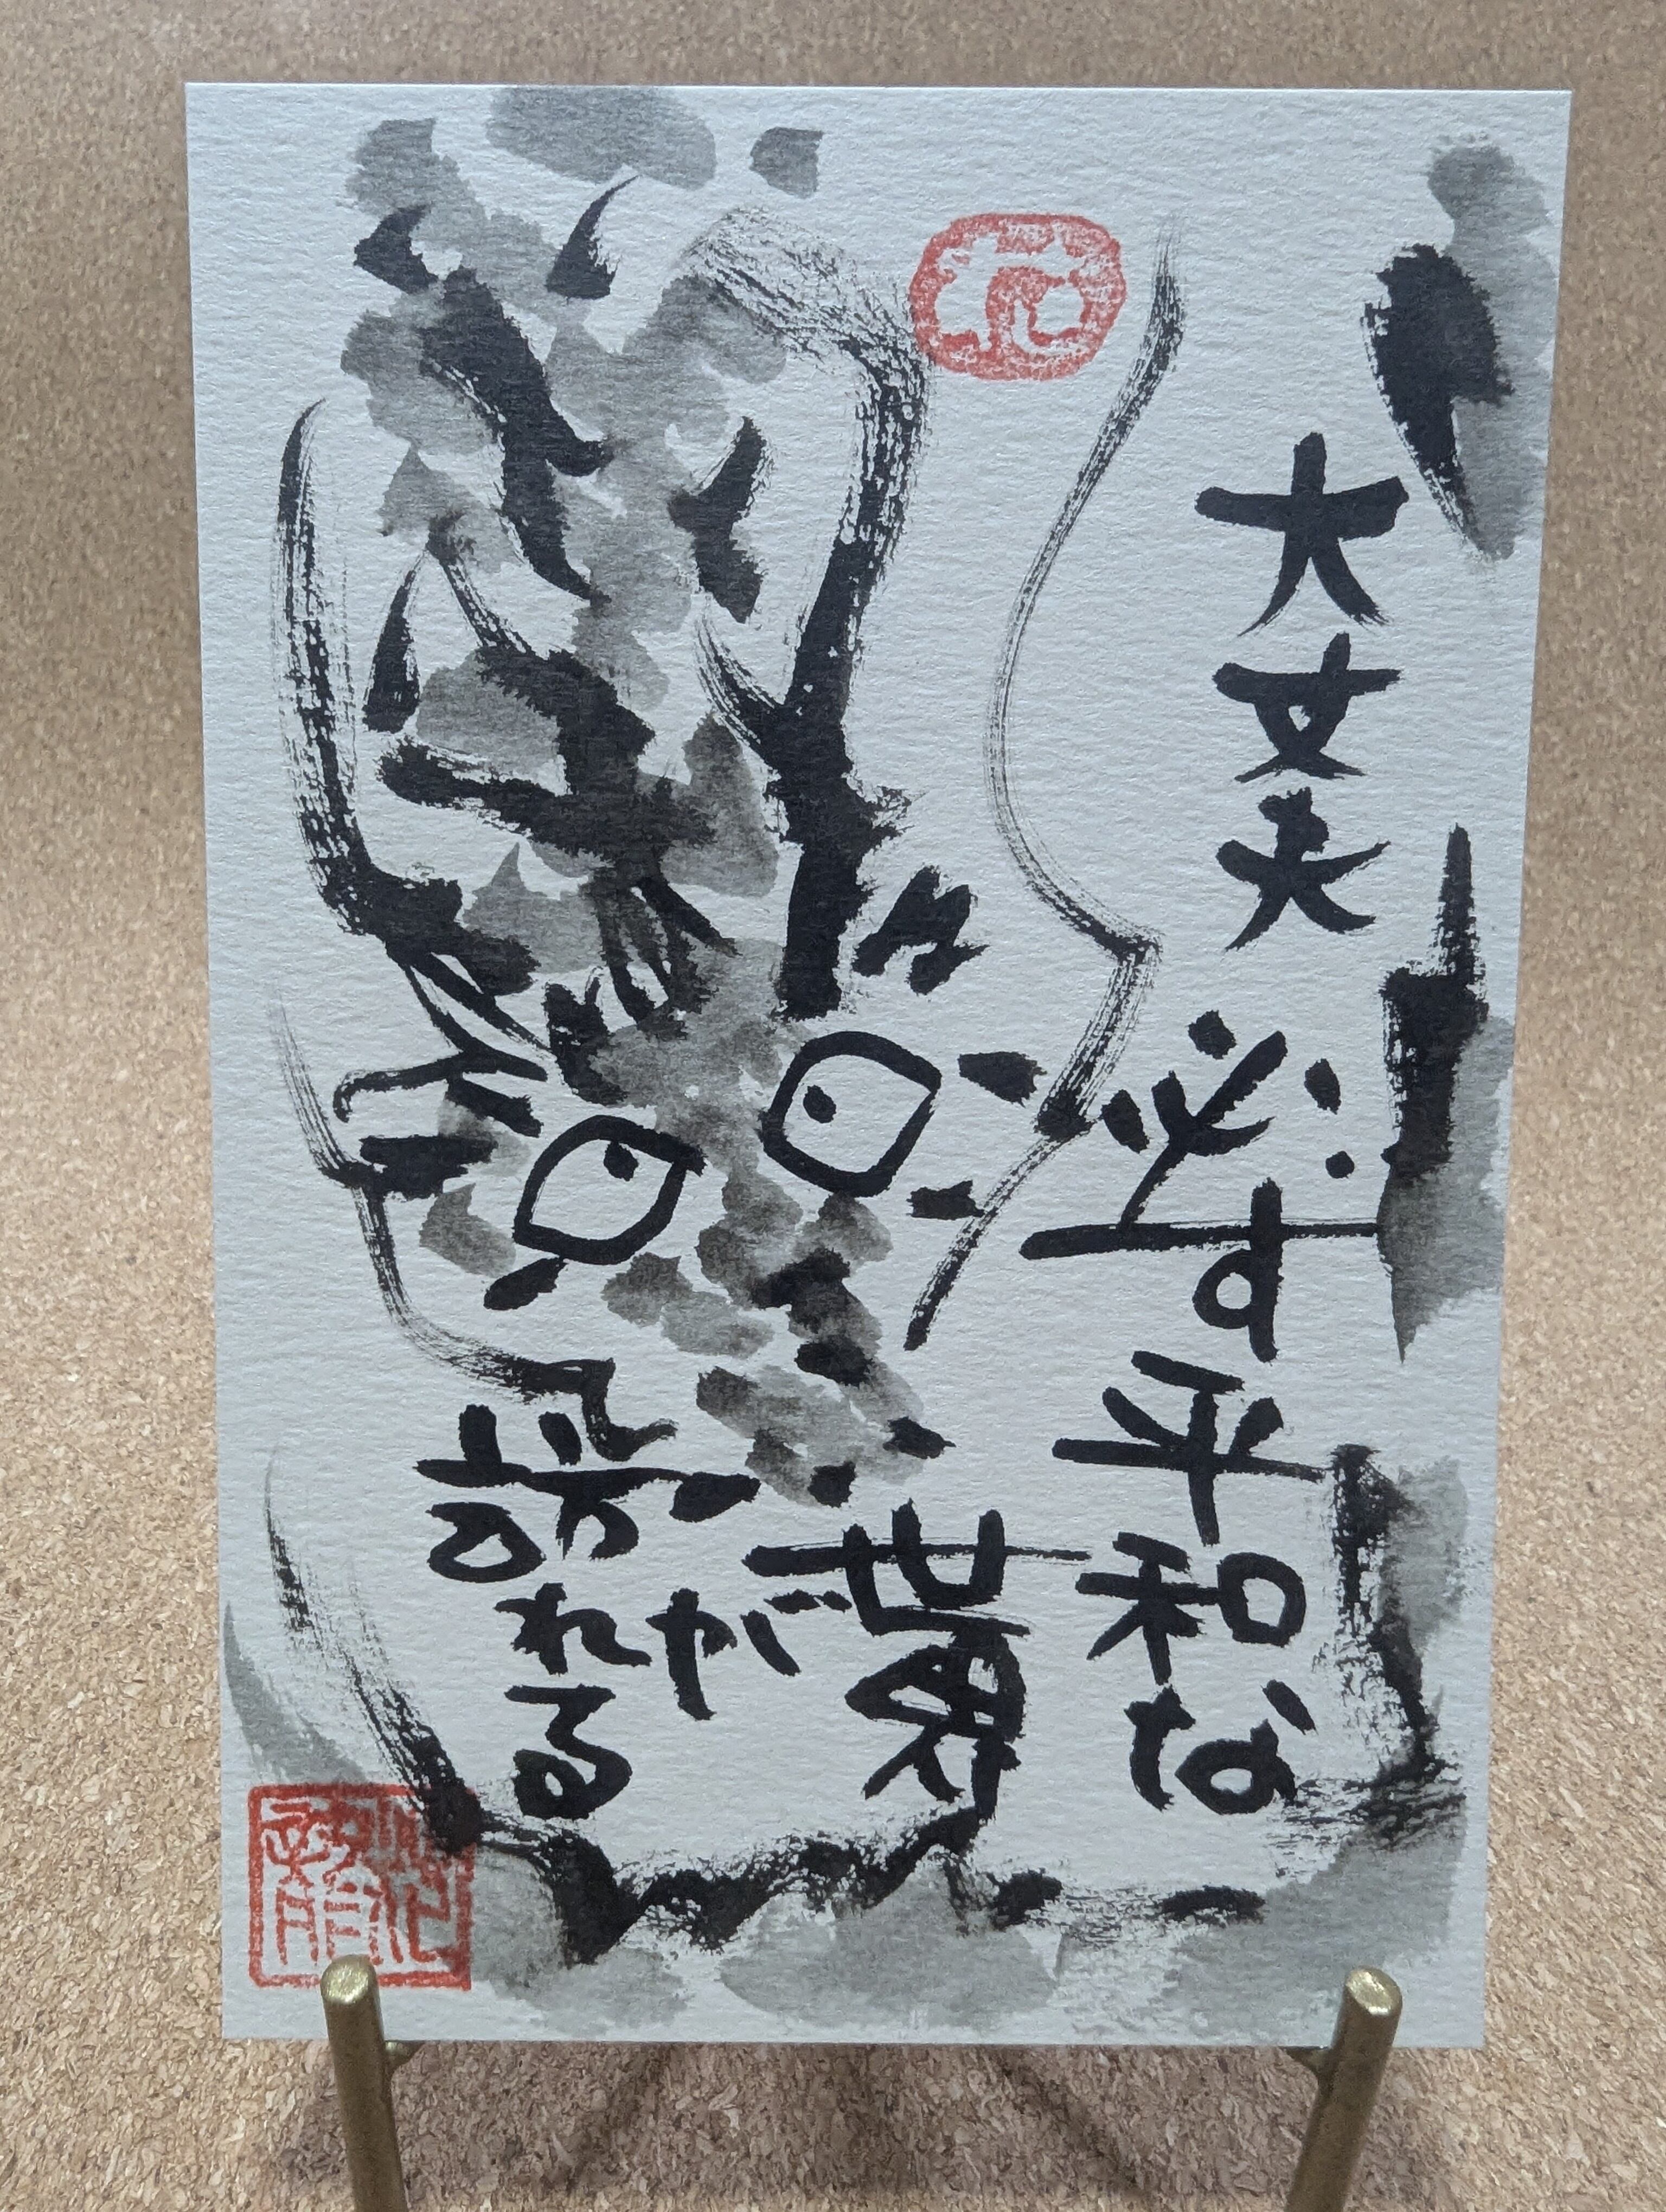 大丈夫
必ず平和な
世界が
訪れる